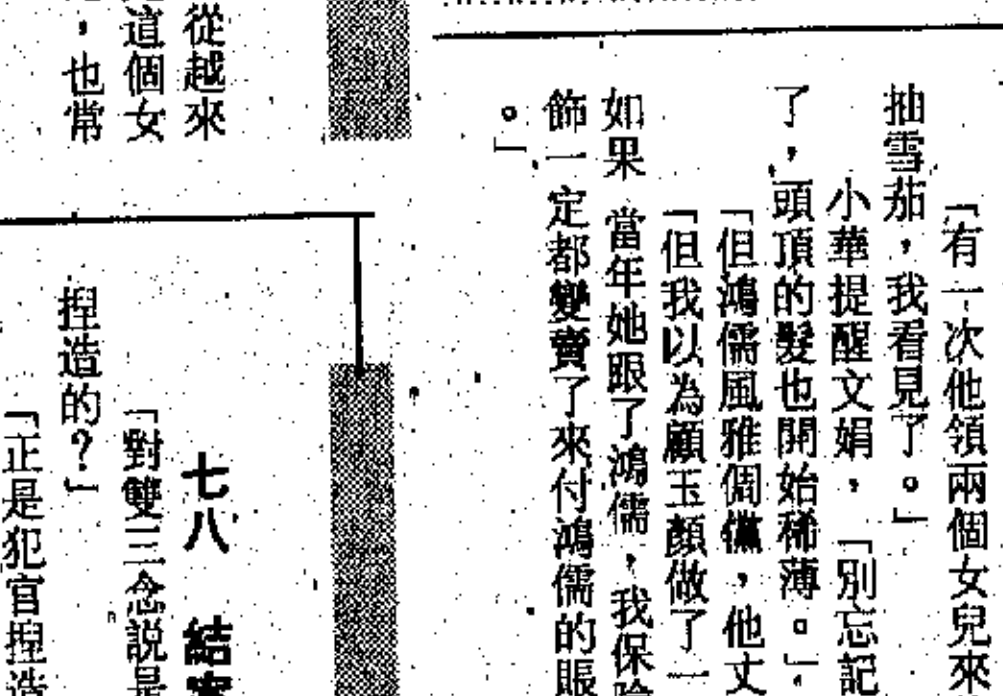 「有一次他領兩個女兒來
抽雪茄,我看見了。」
小華提醒文娟,「別忘記
了,頭頂的髮也開始稀薄。」
「但鴻儒風雅倜儻,他丈
「但我以為顧玉顏做了一
如果當年她跟了鴻儒,我保險
飾一定都變賣了來付鴻儒的賬
。」
從越來
這個女
,也常
七八 結案
「對雙三念説是
捏造的?」
「正是犯官捏造